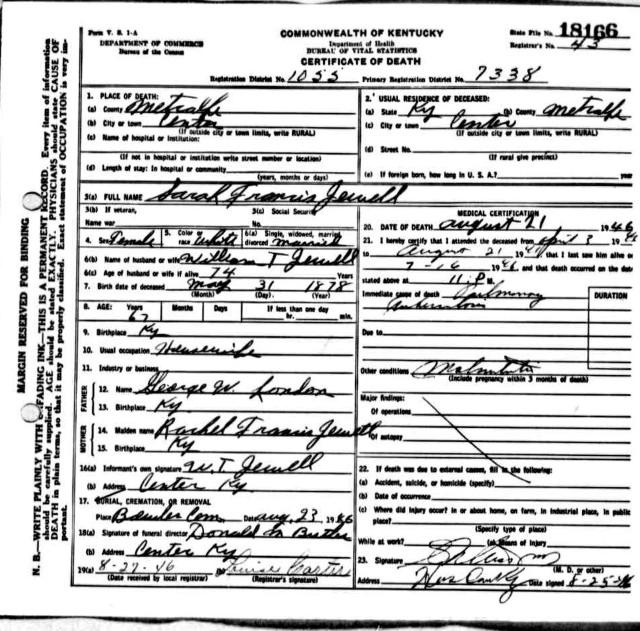 Form V. S. 1-A
DEPARTMENT OF COMMERCE
Bureau of the Census
COMMONWEALTH OF KENTUCKY
Department of Health
BUREAU OF VITAL STATISTICS
CERTIFICATE OF DEATH
State File No. 18166
Registrar's No. 43
Registration District No. 1055 Primary Registration District No. 7338
MARGIN RESERVED FOR BINDING
N. B.—WRITE PLAINLY WITH UNFADING INK—THIS IS A PERMANENT RECORD. Every item of information
should be carefully supplied. AGE should be stated EXACTLY. PHYSICIANS should state CAUSE OF
DEATH in plain terms, so that it may be properly classified. Exact statement of OCCUPATION is very im-
portant.
1. PLACE OF DEATH:
(a) County Metcalfe
(b) City or town Center
(If outside city or town limits, write RURAL)
(c) Name of hospital or institution:
(If not in hospital or institution write street number or location)
(d) Length of stay: In hospital or community
(years, months or days)
2. USUAL RESIDENCE OF DECEASED:
(a) State Ky (b) County Metcalfe
(c) City or town Center
(If outside city or town limits, write RURAL)
(d) Street No.
(If rural give precinct)
(e) If foreign born, how long in U. S. A.? years
3(a) FULL NAME Sarah Francis Jewell
3(b) If veteran, Name war
3(c) Social Security No.
4. Sex Female 5. Color or race White 6(a) Single, widowed, married, divorced married
6(b) Name of husband or wife William T Jewell
6(c) Age of husband or wife if alive 74 Years
7. Birth date of deceased May 31 1878
(Month) (Day) (Year)
8. AGE: Years Months Days If less than one day
67 hr. min.
9. Birthplace Ky
10. Usual occupation Housewife
11. Industry or business
FATHER
12. Name George W. London
13. Birthplace Ky
MOTHER
14. Maiden name Rachel Francis Jewell
15. Birthplace Ky
16(a) Informant's own signature W. T. Jewell
(b) Address Center Ky
17. BURIAL, CREMATION, OR REMOVAL
Place Cem Date Aug. 23 1946
18(a) Signature of funeral director Donald Butler
(b) Address Center Ky
19(a) 8-27-46 (b) Louise Carter
(Date received by local registrar) (Registrar's signature)
MEDICAL CERTIFICATION
20. DATE OF DEATH August 21 1946
21. I hereby certify that I attended the deceased from April 3 19
to August 21 19 that I last saw him alive on
7-16 1946 and that death occurred on the date
stated above at 11 P m
Immediate cause of death Pulmonary
DURATION
Due to
Other conditions
(Include pregnancy within 3 months of death)
Major findings:
Of operations
Of autopsy
22. If death was due to external causes, fill in the following:
(a) Accident, suicide, or homicide (specify)
(b) Date of occurrence
(c) Where did injury occur? In or about home, on farm, in industrial place, in public
place?
(Specify type of place)
While at work? (e) Means of injury
23. Signature
(M. D. or other)
Address Date signed 8-25-46